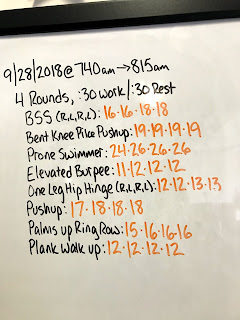 9/28/2018 @ 740am → 815am
4 Rounds, :30 work/:30 Rest
BSS (R,L,R,L): 16·16·18·18
Bent Knee Pike Pushup: 19·19·19·19
Prone Swimmer: 24·26·26·26
Elevated Burpee: 11·12·12·12
One Leg Hip Hinge (R,L,R,L): 12·12·13·13
Pushup: 17·18·18·18
Palms up Ring Row: 15·16·16·16
Plank Walk up: 12·12·12·12